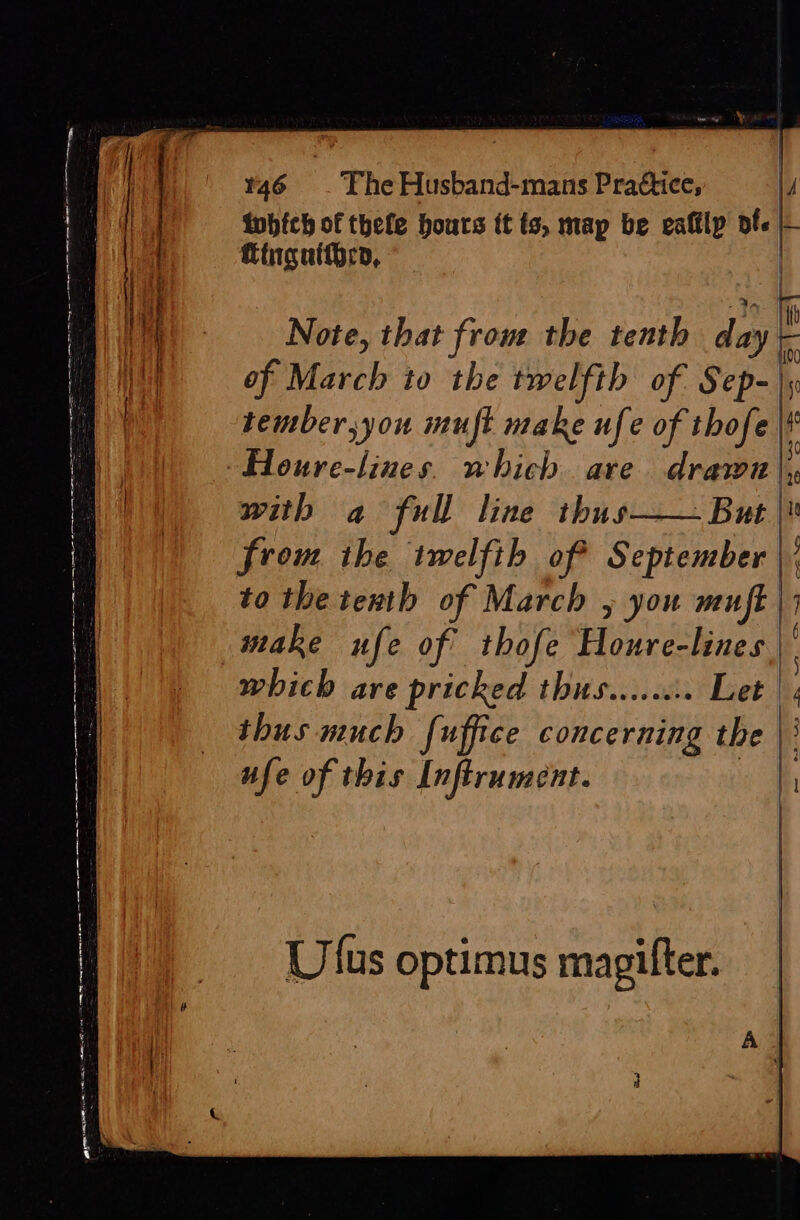 146 The Husband-mans Practice,
which of these hours it is, may be easily dis-
stinguished.
Note, that from the tenth day
of March to the twelfth of Sep-
tember, you muſt make uſe of thoſe
Houre-lines which are drawn
with a full line thus—— But
from the twelfth of September
to the tenth of March, you muſt
make uſe of thoſe Houre-lines
which are pricked thus........ Let
thus much ſuffice concerning the
uſe of this Inſtrument.
Uſus optimus magiſter.
A